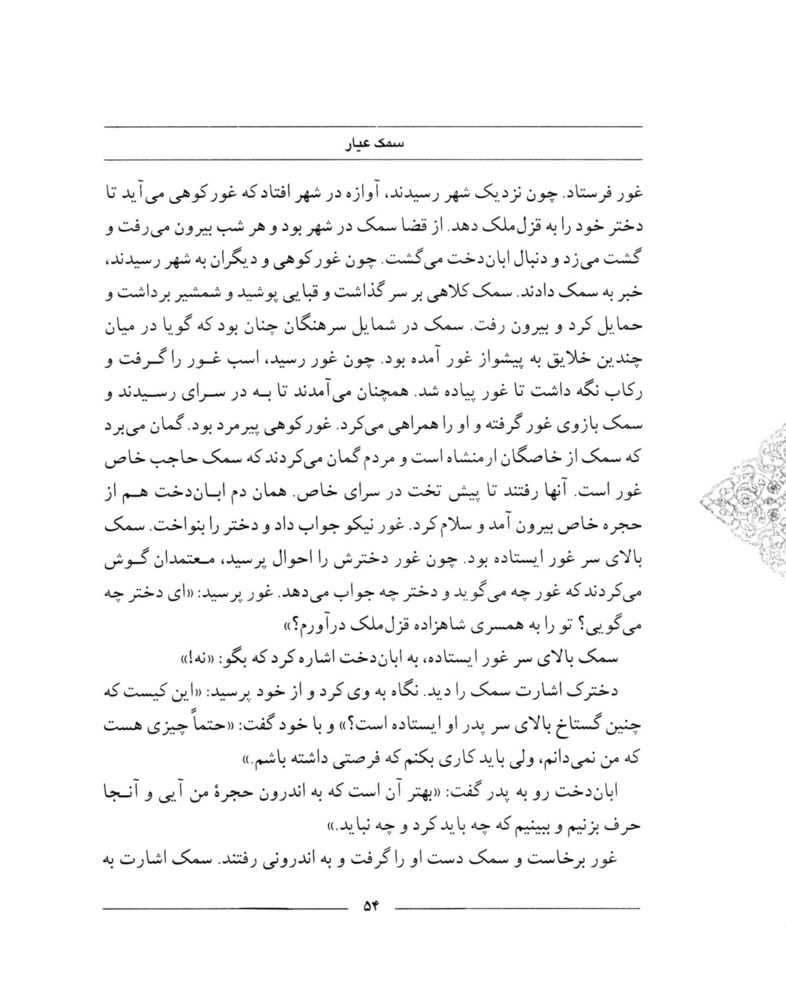 سمک عیار
غور فرستاد. چون نزدیک شهر رسیدند، آوازه در شهر افتاد که غورکوهی می‌آید تا
دختر خود را به قزل‌ملک دهد. از قضا سمک در شهر بود و هر شب بیرون می‌رفت و
گشت می‌زد و دنبال ابان‌دخت می‌گشت. چون غورکوهی و دیگران به شهر رسیدند،
خبر به سمک دادند. سمک کلاهی بر سر گذاشت و قبایی پوشید و شمشیر برداشت و
حمایل کرد و بیرون رفت. سمک در شمایل سرهنگان چنان بود که گویا در میان
چندین خلایق به پیشواز غور آمده بود. چون غور رسید، اسب غور را گرفت و
رکاب نگه داشت تا غور پیاده شد. همچنان می‌آمدند تا به در سرای رسیدند و
سمک بازوی غور گرفته و او را همراهی می‌کرد. غورکوهی پیرمرد بود. گمان می‌برد
که سمک از خاصگان ارمنشاه است و مردم گمان می‌کردند که سمک حاجب خاص
غور است. آنها رفتند تا پیش تخت در سرای خاص. همان دم ابان‌دخت هم از
حجره خاص بیرون آمد و سلام کرد. غور نیکو جواب داد و دختر را بنواخت. سمک
بالای سر غور ایستاده بود. چون غور دخترش را احوال پرسید، معتمدان گوش
می‌کردند که غور چه می‌گوید و دختر چه جواب می‌دهد. غور پرسید: «ای دختر چه
می‌گویی؟ تو را به همسری شاهزاده قزل‌ملک درآورم؟»
سمک بالای سر غور ایستاده، به ابان‌دخت اشاره کرد که بگو: «نه!»
دخترک اشارت سمک را دید. نگاه به وی کرد و از خود پرسید: «این کیست که
چنین گستاخ بالای سر پدر او ایستاده است؟» و با خود گفت: «حتماً چیزی هست
که من نمی‌دانم، ولی باید کاری بکنم که فرصتی داشته باشم.»
ابان‌دخت رو به پدر گفت: «بهتر آن است که به اندرون حجرهٔ من آیی و آنجا
حرف بزنیم و ببینیم که چه باید کرد و چه نباید.»
غور برخاست و سمک دست او را گرفت و به اندرونی رفتند. سمک اشارت به
۵۴